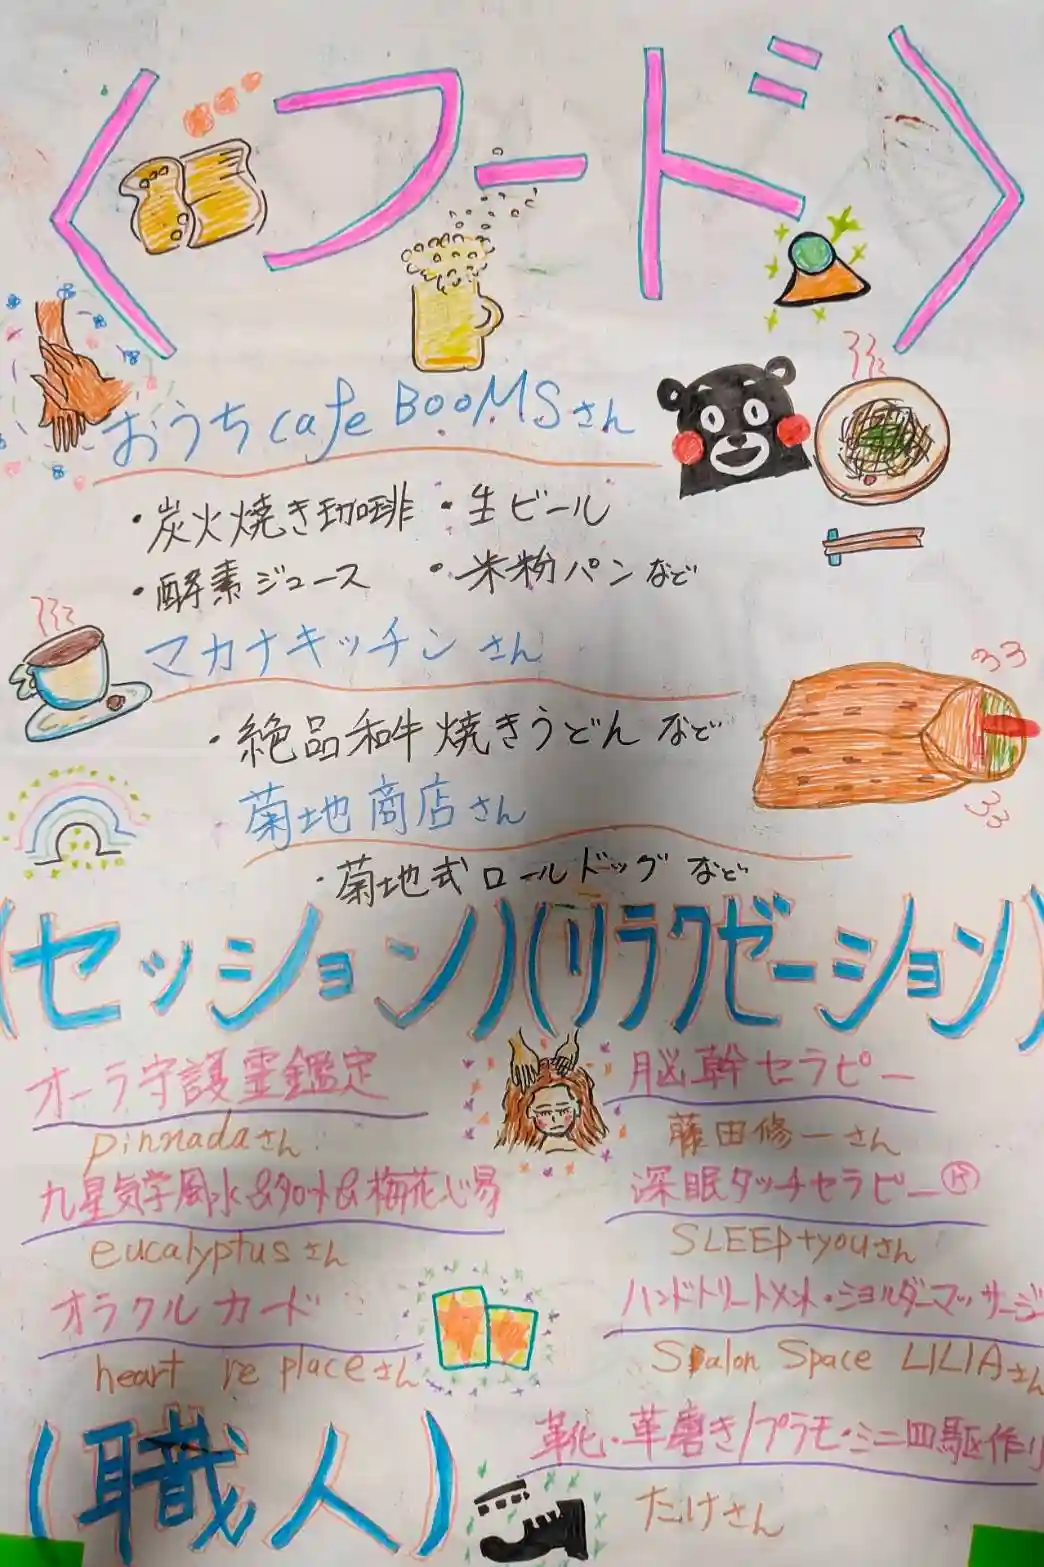 〈フード〉
おうちcafe BooMSさん
・炭火焼き珈琲 ・生ビール
・酵素ジュース ・米粉パンなど
マカナキッチンさん
・絶品和牛焼きうどんなど
菊地商店さん
・菊地式ロールドッグなど
(セッション)
オーラ守護霊鑑定
pinnadaさん
九星気学風水&タロット&梅花心易
eucalyptusさん
オラクルカード
heart re placeさん
(リラクゼーション)
脳幹セラピー
藤田修一さん
深眠タッチセラピー®
SLEEP+youさん
ハンドトリートメント・ショルダーマッサージ
Salon Space LILIAさん
(職人)
革靴・革磨き/プラモ・ミニ四駆作り
たけさん